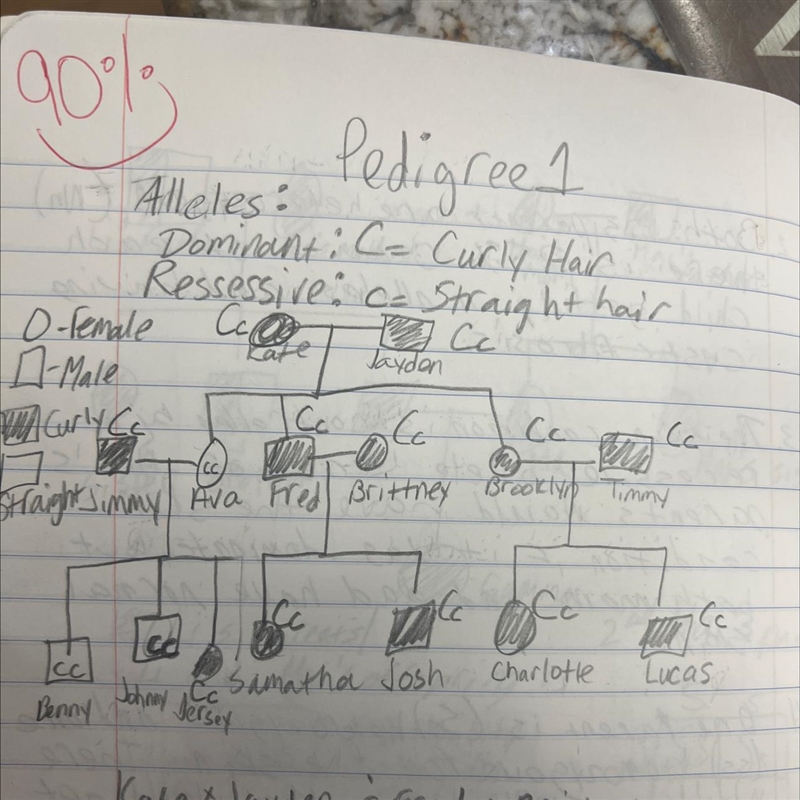 90%
Pedigree 1
Alleles:
Dominant: C= Curly Hair
Ressessive: c= Straight hair
O-Female
Cc Kate Jayden Cc
-Male
Curly Cc Cc Cc Cc Cc
cc
Straight Jimmy Ava Fred Brittney Brooklyn Timmy
Cc Cc Cc Cc
cc cc
Benny Johnny Cc Samatha Josh Charlotte Lucas
Jersey